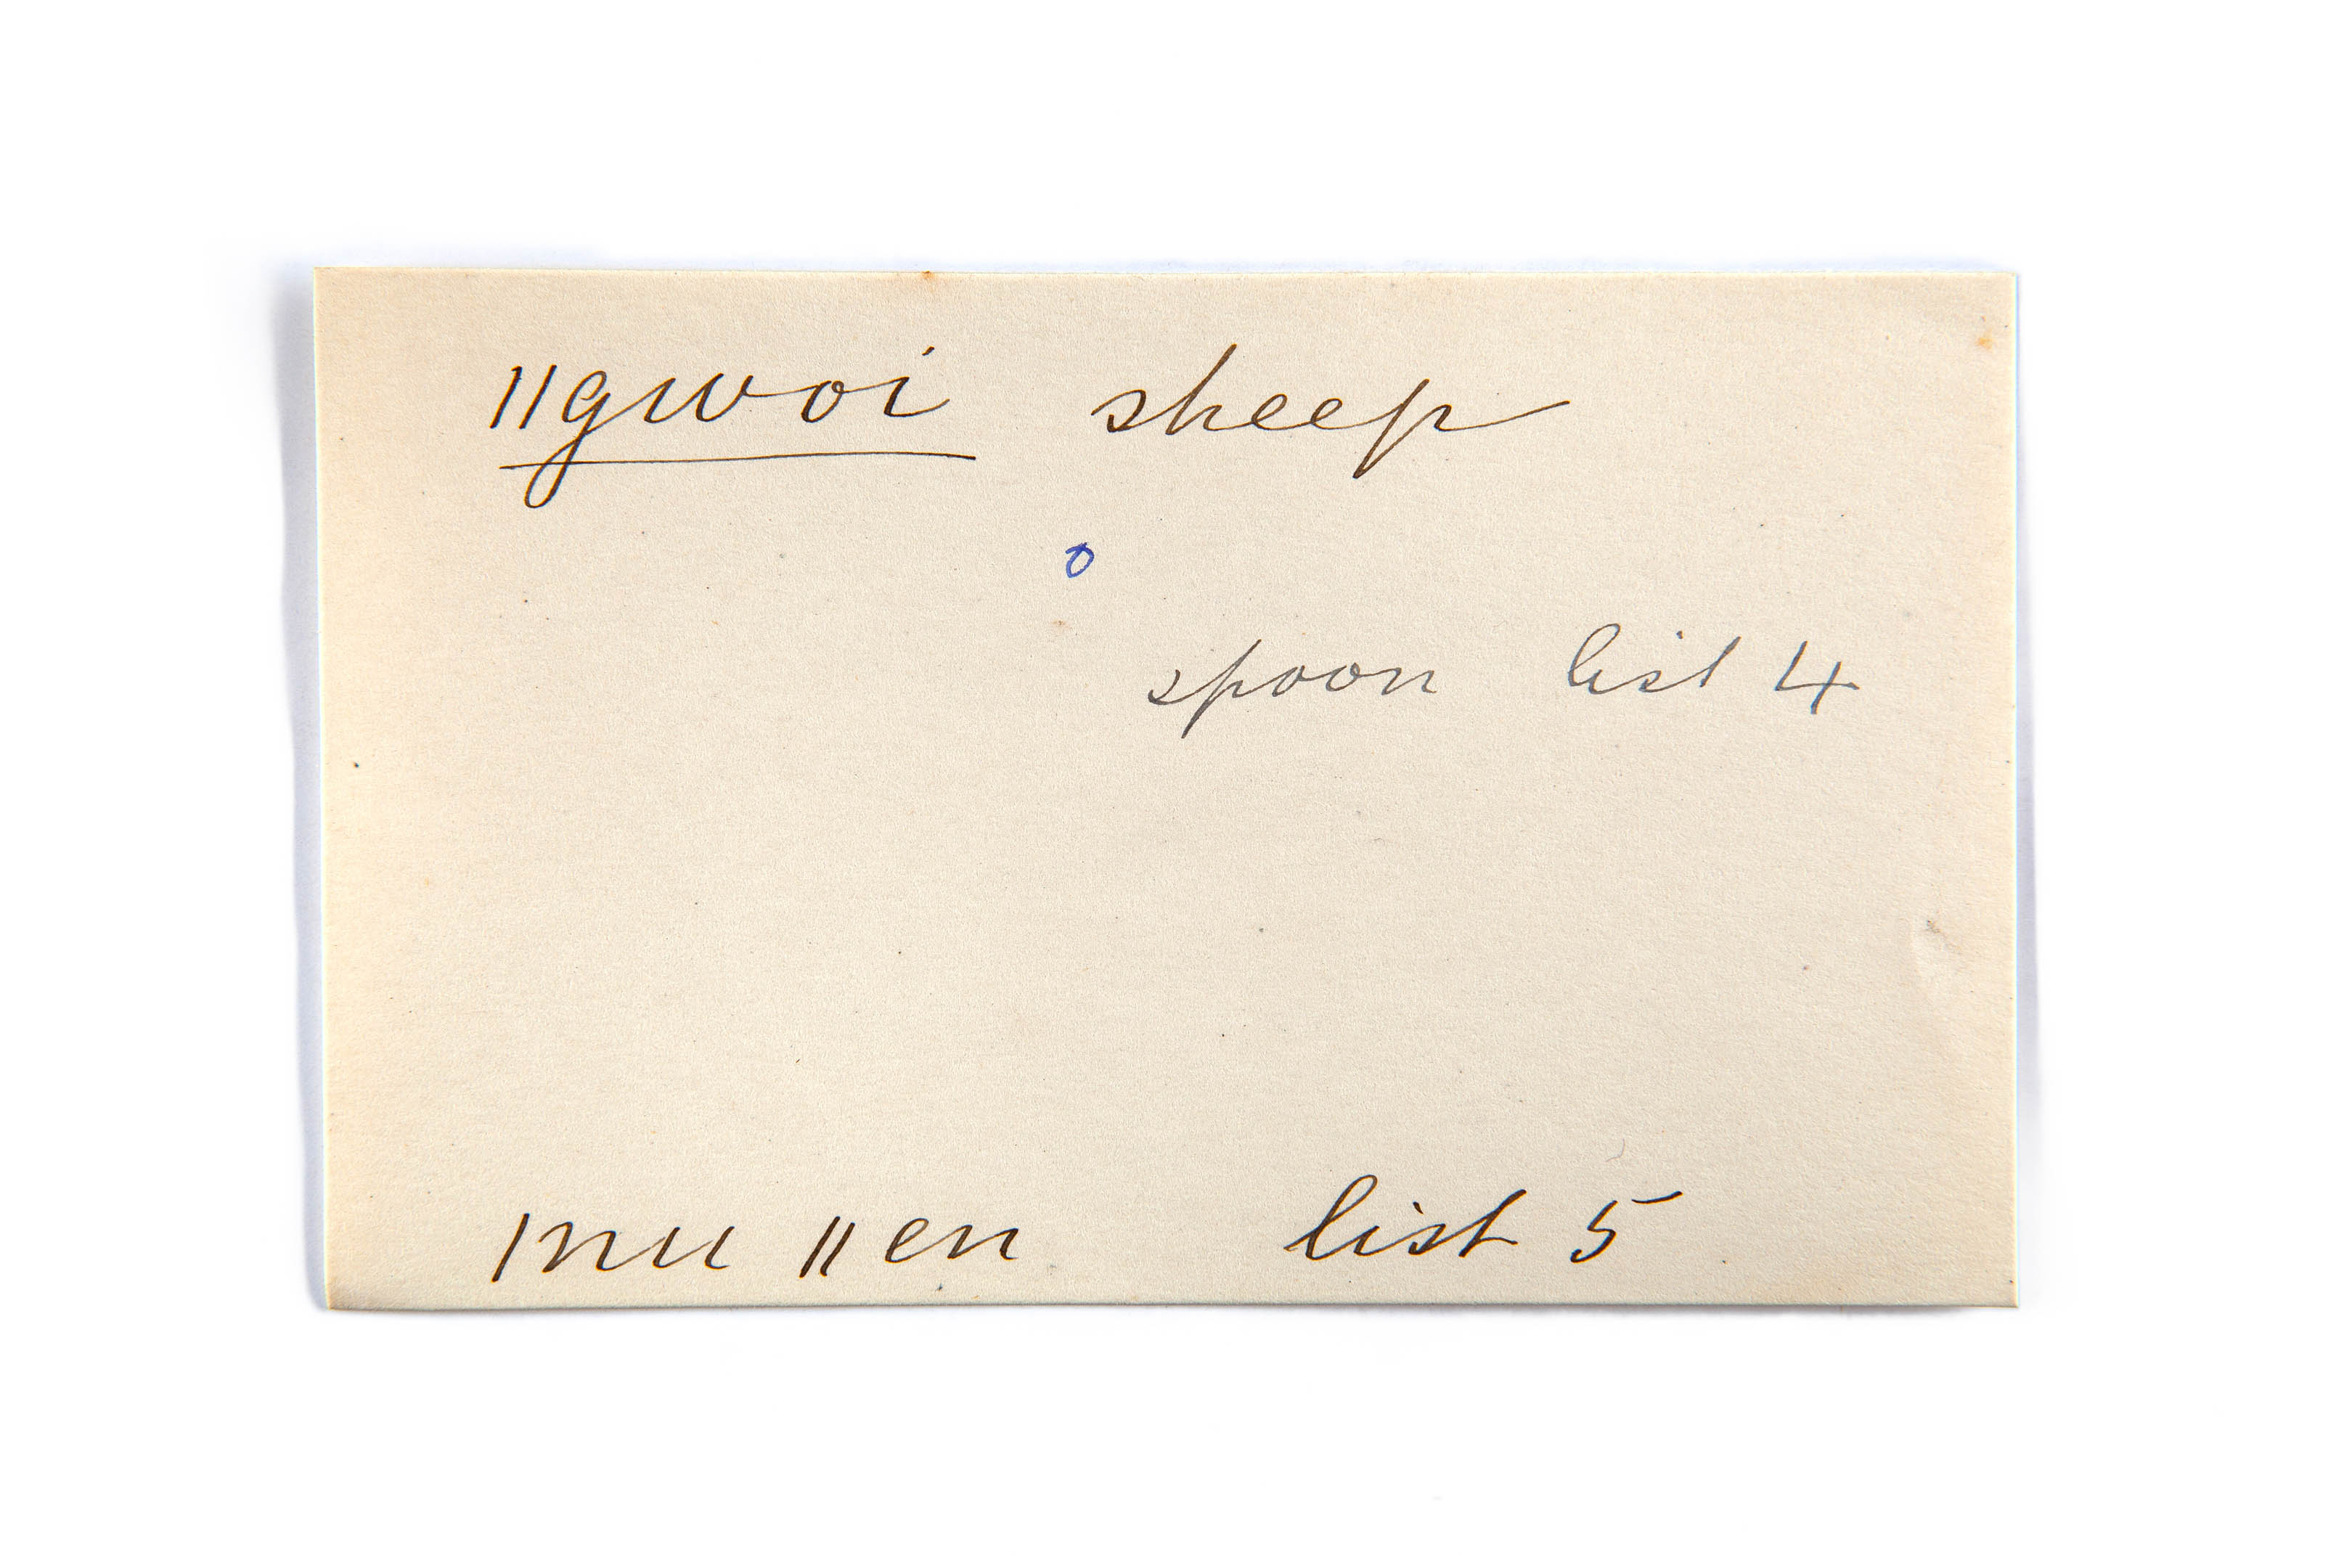 ǁgwoi sheep
o
spoon list 4
ǀnu ǁen list 5